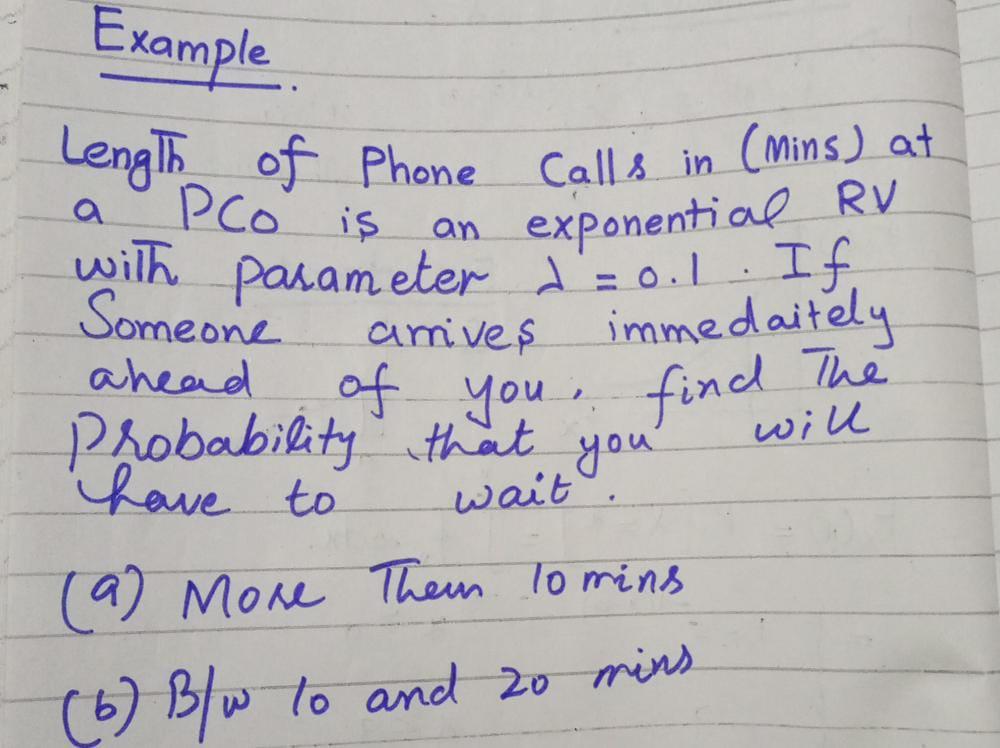 Example.
Length of Phone Calls in (Mins) at
a PCO is an exponential RV
with parameter λ = 0.1. If
Someone arrives immedaitely
ahead of you, find The
Probability that you will
have to wait.
(a) More Then 10 mins
(b) B/w 10 and 20 mins